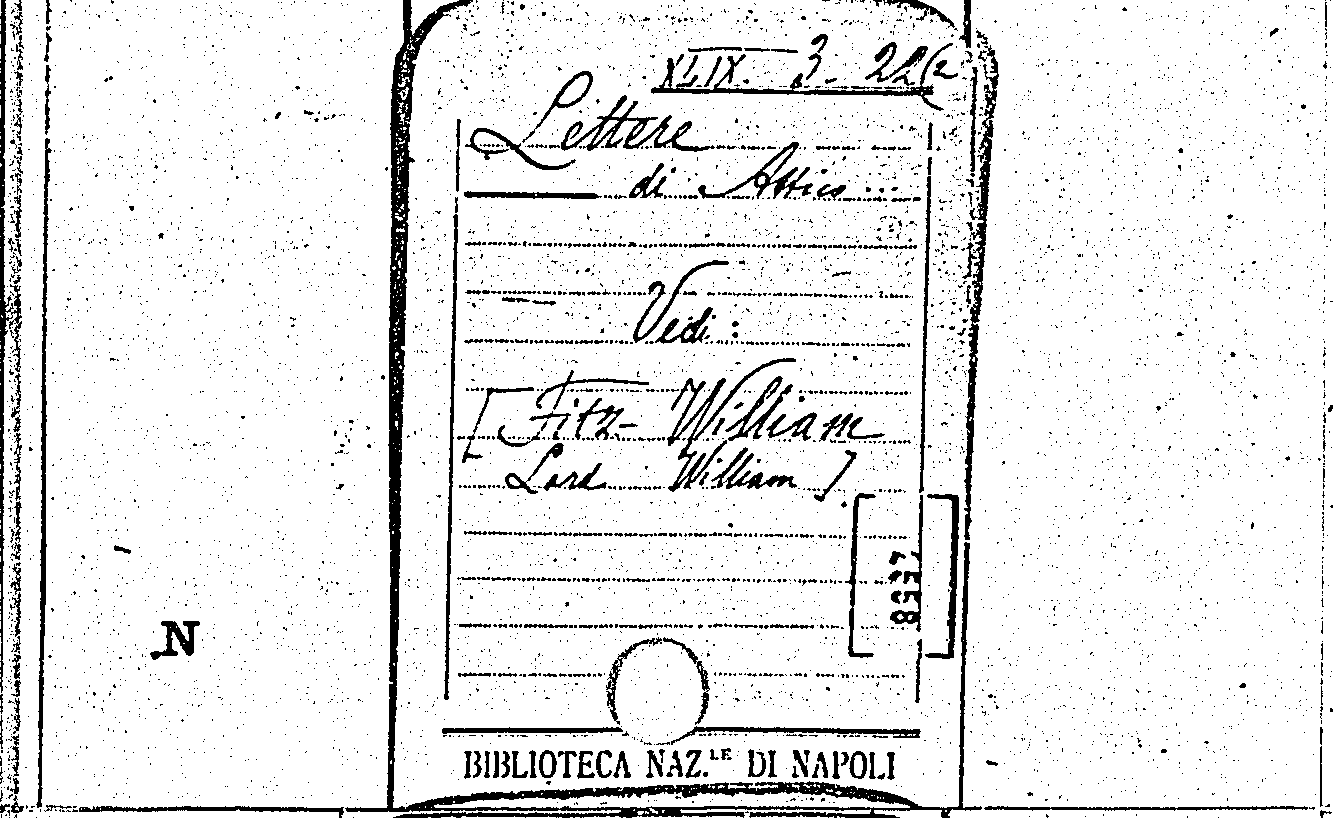 XLIX. 3. 22(2
Lettere
di Attico ...
Vedi:
[Fitz-William
Lord William]
8557
N
BIBLIOTECA NAZ.LE DI NAPOLI